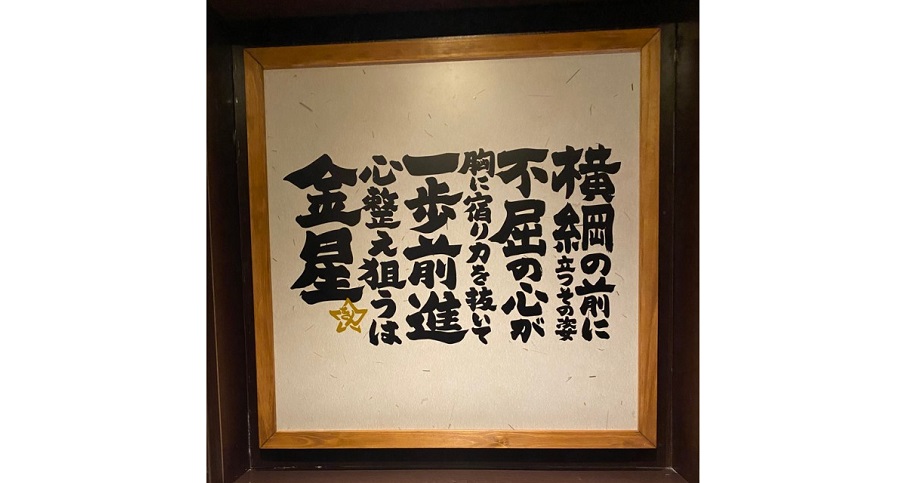 横綱の前に
立つその姿
不屈の心が
胸に宿り力を抜いて
一歩前進
心整え狙うは
金星